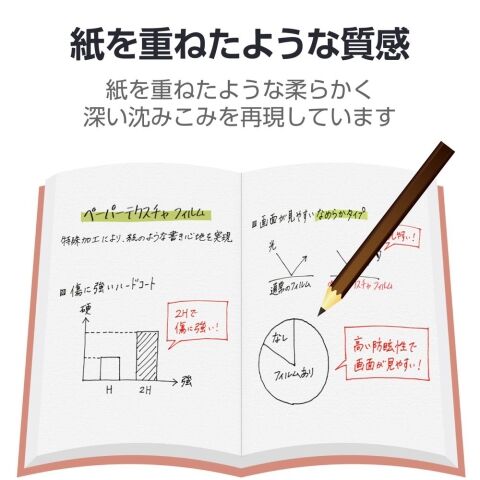 紙を重ねたような質感
紙を重ねたような柔らかく
深い沈みこみを再現しています
ペーパーテクスチャフィルム
特殊加工により、紙のような書き心地を実現
傷に強いハードコート
硬
2Hで
傷に強い!
H
2H
強
画面が見やすいなめらかタイプ
光
しやすい!
通常のフィルム
スチャフィルム
なし
フィルムあり
高い防眩性で
画面が見やすい!